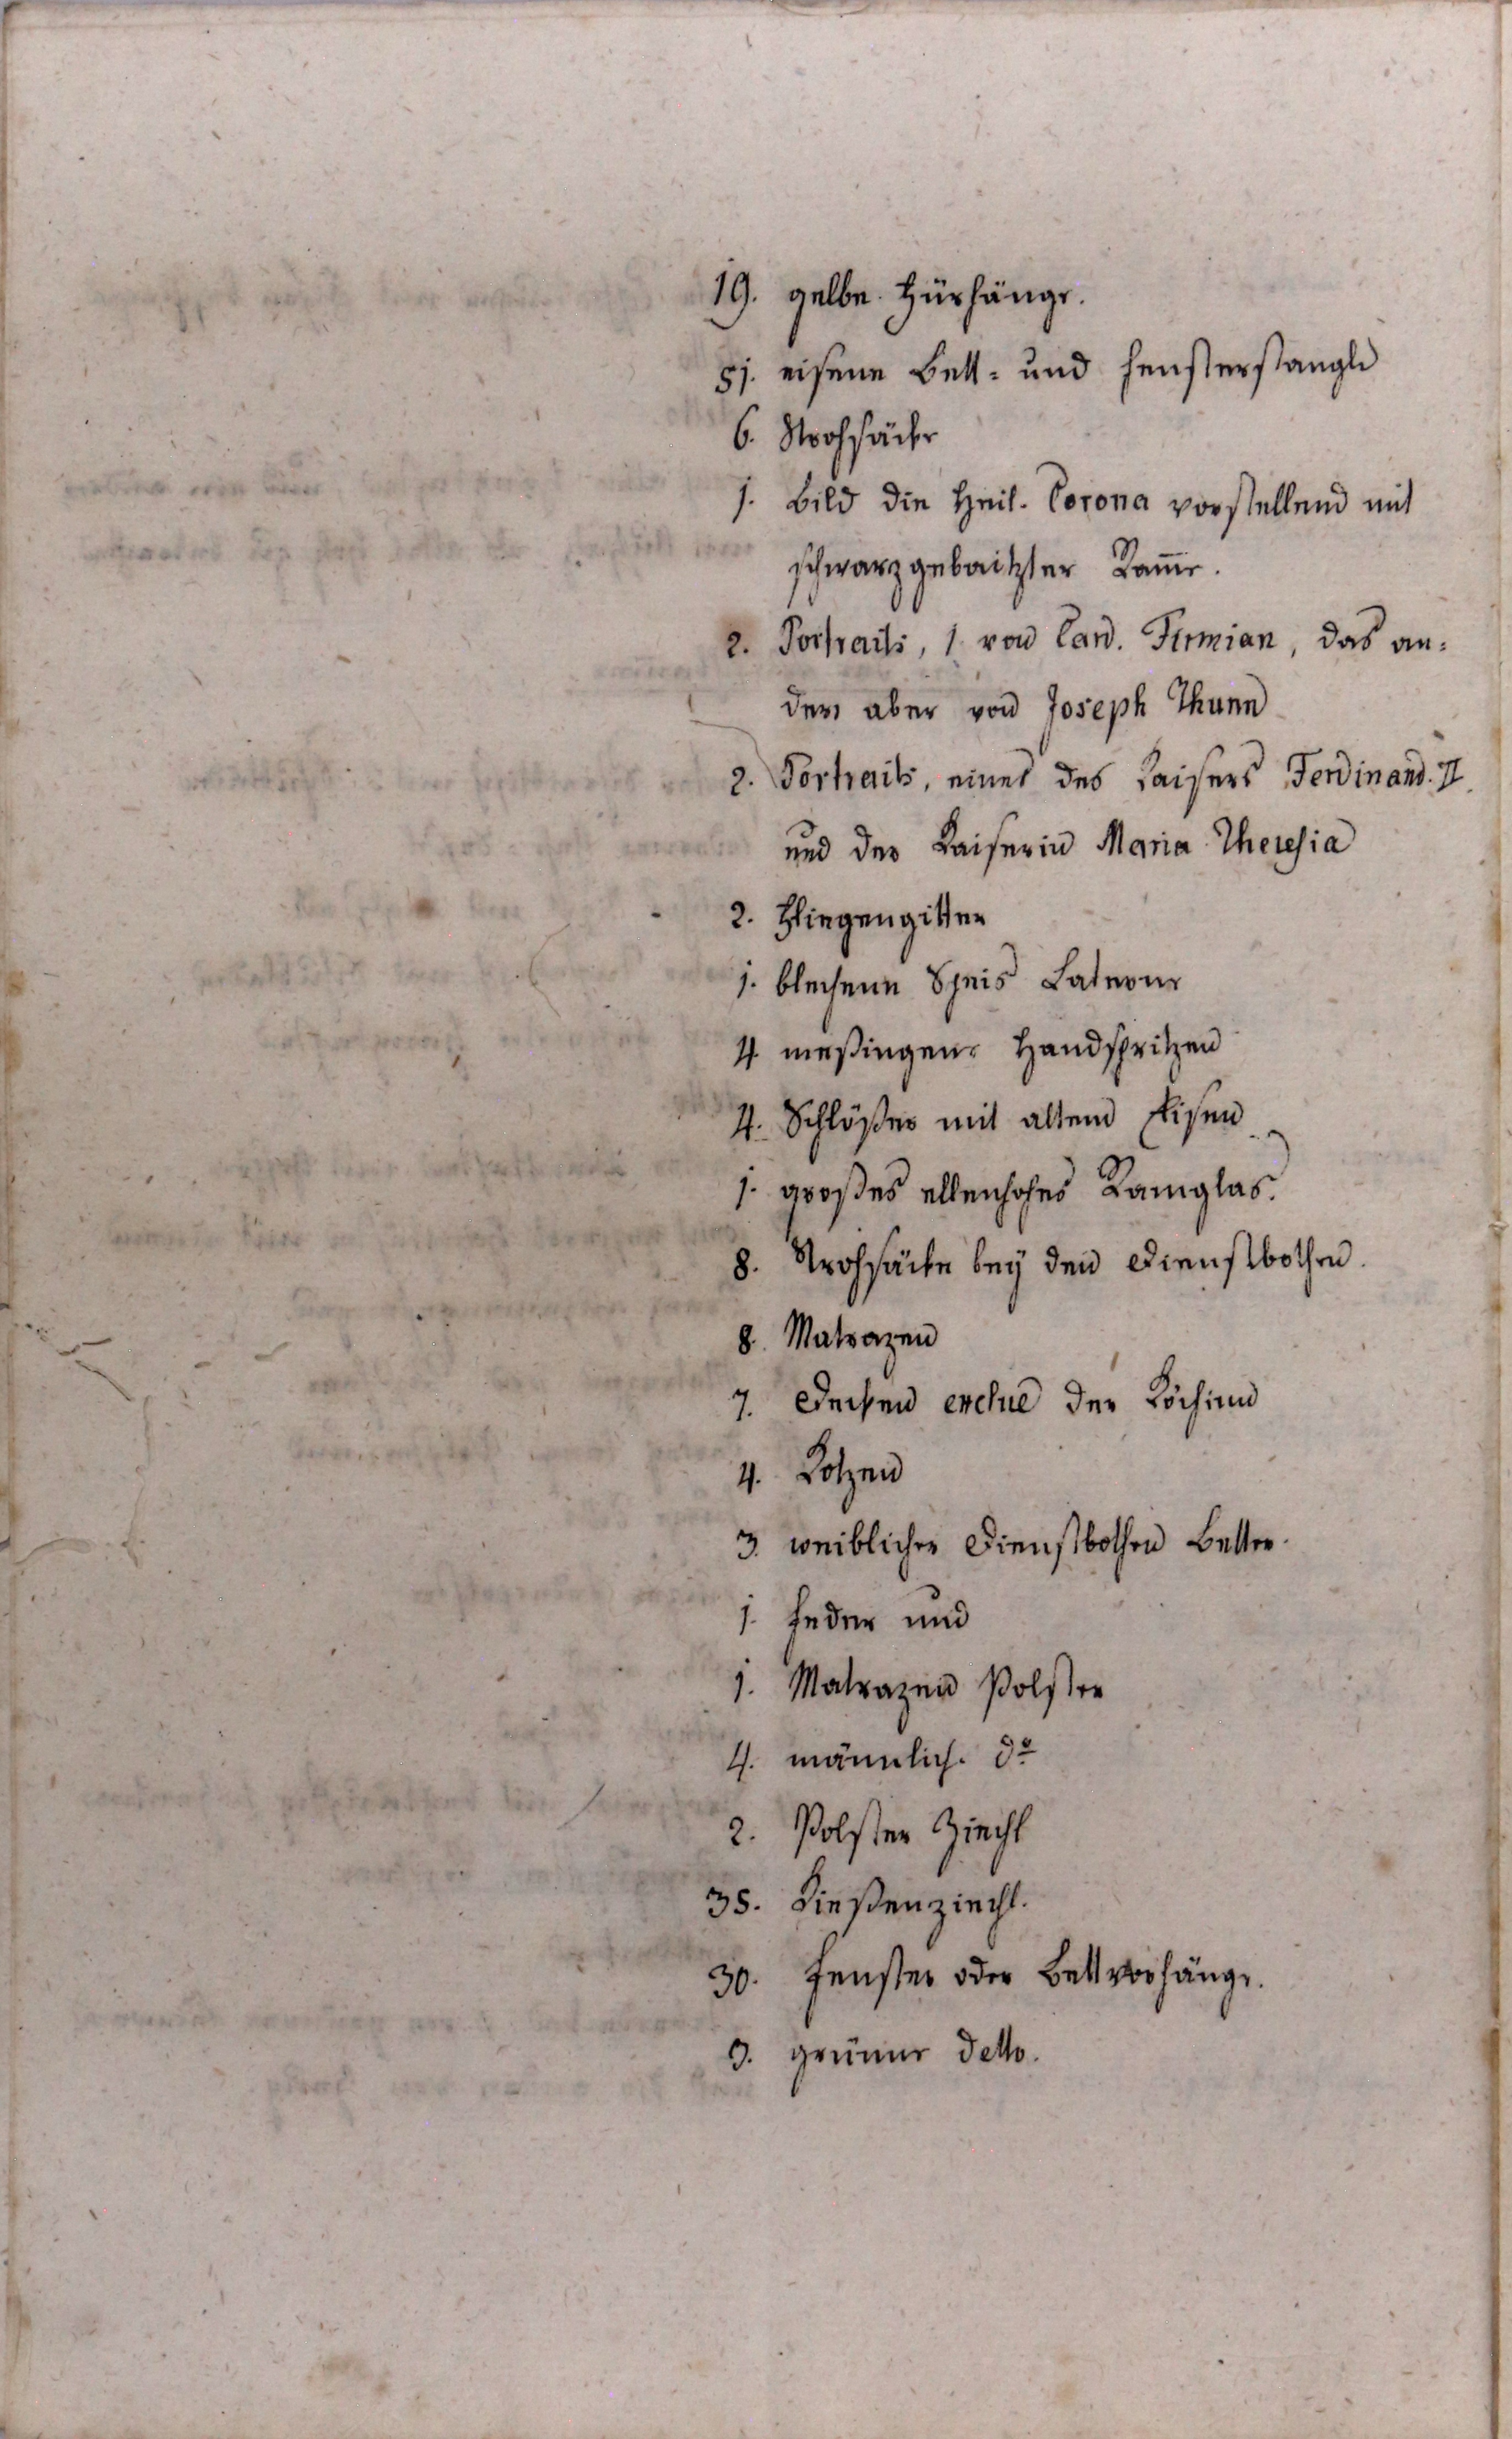 19. gelbe Fürhänge.
51. eisene Bett- und Fensterstangle
6. Strohsäcke
1. Bild die Heil. Corona vorstellend mit
schwarzgebaitzter Ram̅e.
2. Portraits, 1 von Card. Firmian, das an-
dere aber von Joseph Thunn
2. Portraits, eines des Kaisers Ferdinand. II.
und der Kaiserin Maria Theresia
2. Fliegengitter
1. blechene Speis Laterne
4. meßingene Handspritzen
4. Schlößer mit altem Eisen
1. großes ellenhohes Ramglas.
8. Strohsäcke bey den Dienstbothen.
8. Matrazen
7. Decken exclus der Köchinn
4. Kotzen
3. weibliche Dienstbothen Better.
1. Feder und
1. Matrazen Polster
4. männlich. do
2. Polster Ziechl
35. Kießenziechl.
30. Fenster oder Bettvorhänge.
3. grüne detto.